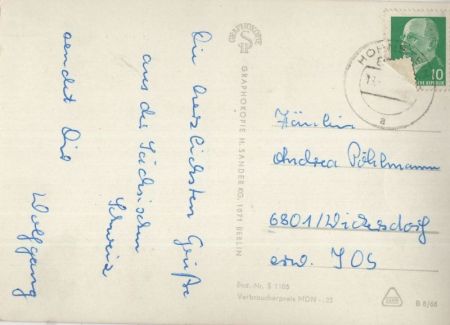 Die herzlichsten Grüße
aus der Sächsischen
Schweiz
sendet Dir
Wolfgang
GRAPHOKOPIE
GRAPHOKOPIE H. SANDER KG, 1071 BERLIN
HOH
a
10
Fräulein
Andrea Pöhlmann
6801/Wickersdorf
erw. IOS
Best.-Nr. S 1105
Verbraucherpreis MDN -,25
B 8/66